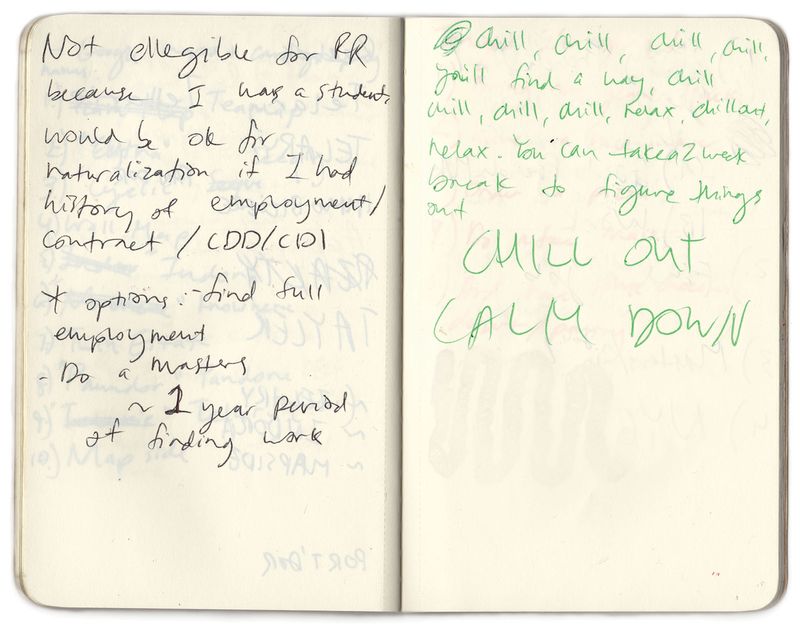 Not ellegible for RR
because I was a student,
would be ok for
naturalization if I had
history of employment/
contract / CDD/CDI
* options: - find full
employment
- Do a masters
~ 1 year period
of finding work
chill, chill, chill, chill,
you'll find a way, chill
chill, chill, chill, relax, chillout,
relax. You can take a 2 week
break to figure things
out
CHILL OUT
CALM DOWN
TELARY
REALTY
TAYLER
10) Map side
~ MAPSIDE
PORT'DOR